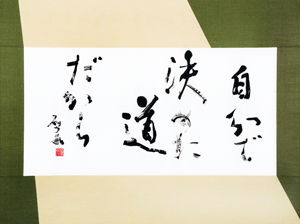 自分で
決めた
道
だから